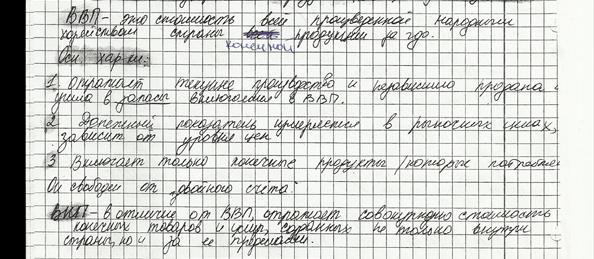 ВВП - это стоимость всей произведенной народным
хозяйством страны конечной продукции за год.
Осн. хар-ки:
1 Отражает текущие производства и независимо продана и
ушла в запасы включаемая в ВВП.
2 Денежный показатель измеряется в рыночных ценах,
зависит от уровня цен
3 Включает только конечные продукты /которые потреблен
Он свободен от "двойного счета"
ВНП - в отличие от ВВП, отражает совокупную стоимость
конечных товаров и услуг, созданных не только внутри
страны, но и за ее пределами.